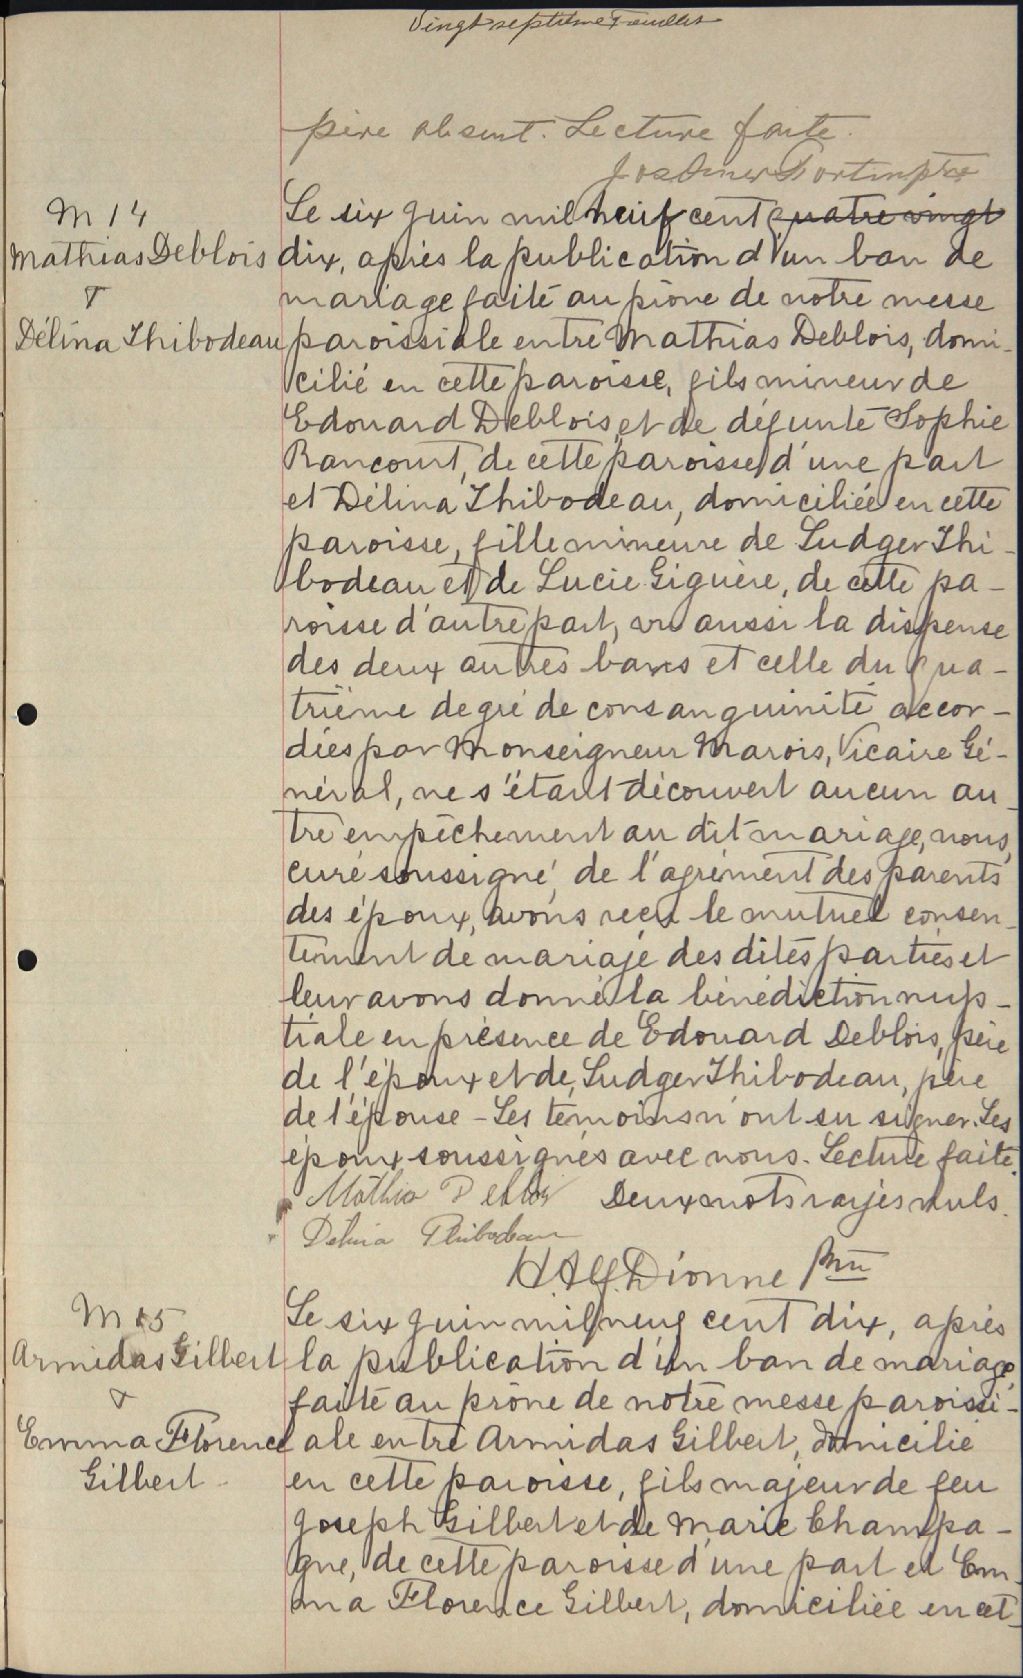 Vingt septième Feuillet
père absent. Lecture faite.
Jos Omer Fortin ptre
M 14
Mathias Deblois
&
Délina Thibodeau
Le six juin mil neuf cent quatre vingt
dix, après la publication d'un ban de
mariage faite au prône de notre messe
paroissiale entre Mathias Deblois, domi-
cilié en cette paroisse, fils mineur de
Edouard Deblois, et de défunte Sophie
Rancourt, de cette paroisse, d'une part
et Délina Thibodeau, domiciliée en cette
paroisse, fille mineure de Ludger Thi-
bodeau et de Lucie Giguère, de cette pa-
roisse d'autre part, vu aussi la dispense
des deux autres bans et celle du qua-
trième degré de consanguinité accor-
dées par Monseigneur Marois, Vicaire Gé-
néral, ne s'étant découvert aucun au-
tre empêchement au dit mariage, nous,
curé soussigné, de l'agrément des parents
des époux, avons reçu le mutuel consen-
tement de mariage des dites parties et
leur avons donné la bénédiction nup-
tiale en présence de Edouard Deblois, père
de l'époux et de Ludger Thibodeau, père
de l'épouse - Les témoins n'ont su signer. Les
époux soussignés avec nous. Lecture faite.
Mathia Deblois Deux mots rayés nuls.
Delina Thibodeau
H. Alf. Dionne Ptre
M 15
Armidas Gilbert
&
Emma Florence
Gilbert
Le six juin mil neuf cent dix, après
la publication d'un ban de mariage,
faite au prône de notre messe paroissi-
ale entre Armidas Gilbert, domicilié
en cette paroisse, fils majeur de feu
Joseph Gilbert et de Marie Champa-
gne, de cette paroisse d'une part et Em-
ma Florence Gilbert, domiciliée en cet-